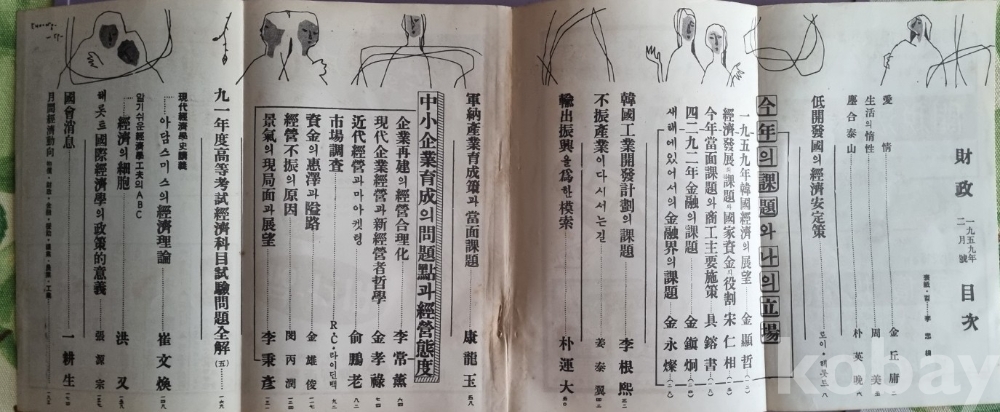 財政
一九五九年
二月號
目次
愛情 金丘庸
生活의 惰性 周美
慶合泰山 朴英晩
低開發國의 經濟安定策
今年의 課題와 나의 立場
一九五九年 韓國經濟의 展望 金顯哲
經濟發展의 課題와 國家資金의 役割 宋仁相
今年當面課題와 商工主要施策 具鎔書
四二九二年金融의 課題 金鎭炯
새해에있어서의 金融界의 課題 金永燦
韓國工業開發計劃의 課題 李根熙
不振産業이 다시서는길 姜泰翼
輸出振興을 爲한 模索 朴運大
軍納産業育成策과 當面課題 康龍玉
中小企業育成의 問題點과 經營態度
企業再建의 經營合理化 李常薰
現代企業經營과 新經營者哲學 金孝祿
近代經營과 마아켓팅 兪鵬老
市場調査 R·C·라이턴먹
資金의 惠澤과 隘路 金雄俊
經營不振의 原因 閔丙潤
景氣의 現局面과 展望 李秉彦
九一年度高等考試經濟科目試驗問題全解(五)
現代經濟學史講義
아담스미스의 經濟理論 崔文煥
알기쉬운經濟學工夫의 ABC
經濟의 細胞 洪又
해롯드 國際經濟學의 政策的意義 張源宗
國會消息 一耕生
月間經濟動向
kobay